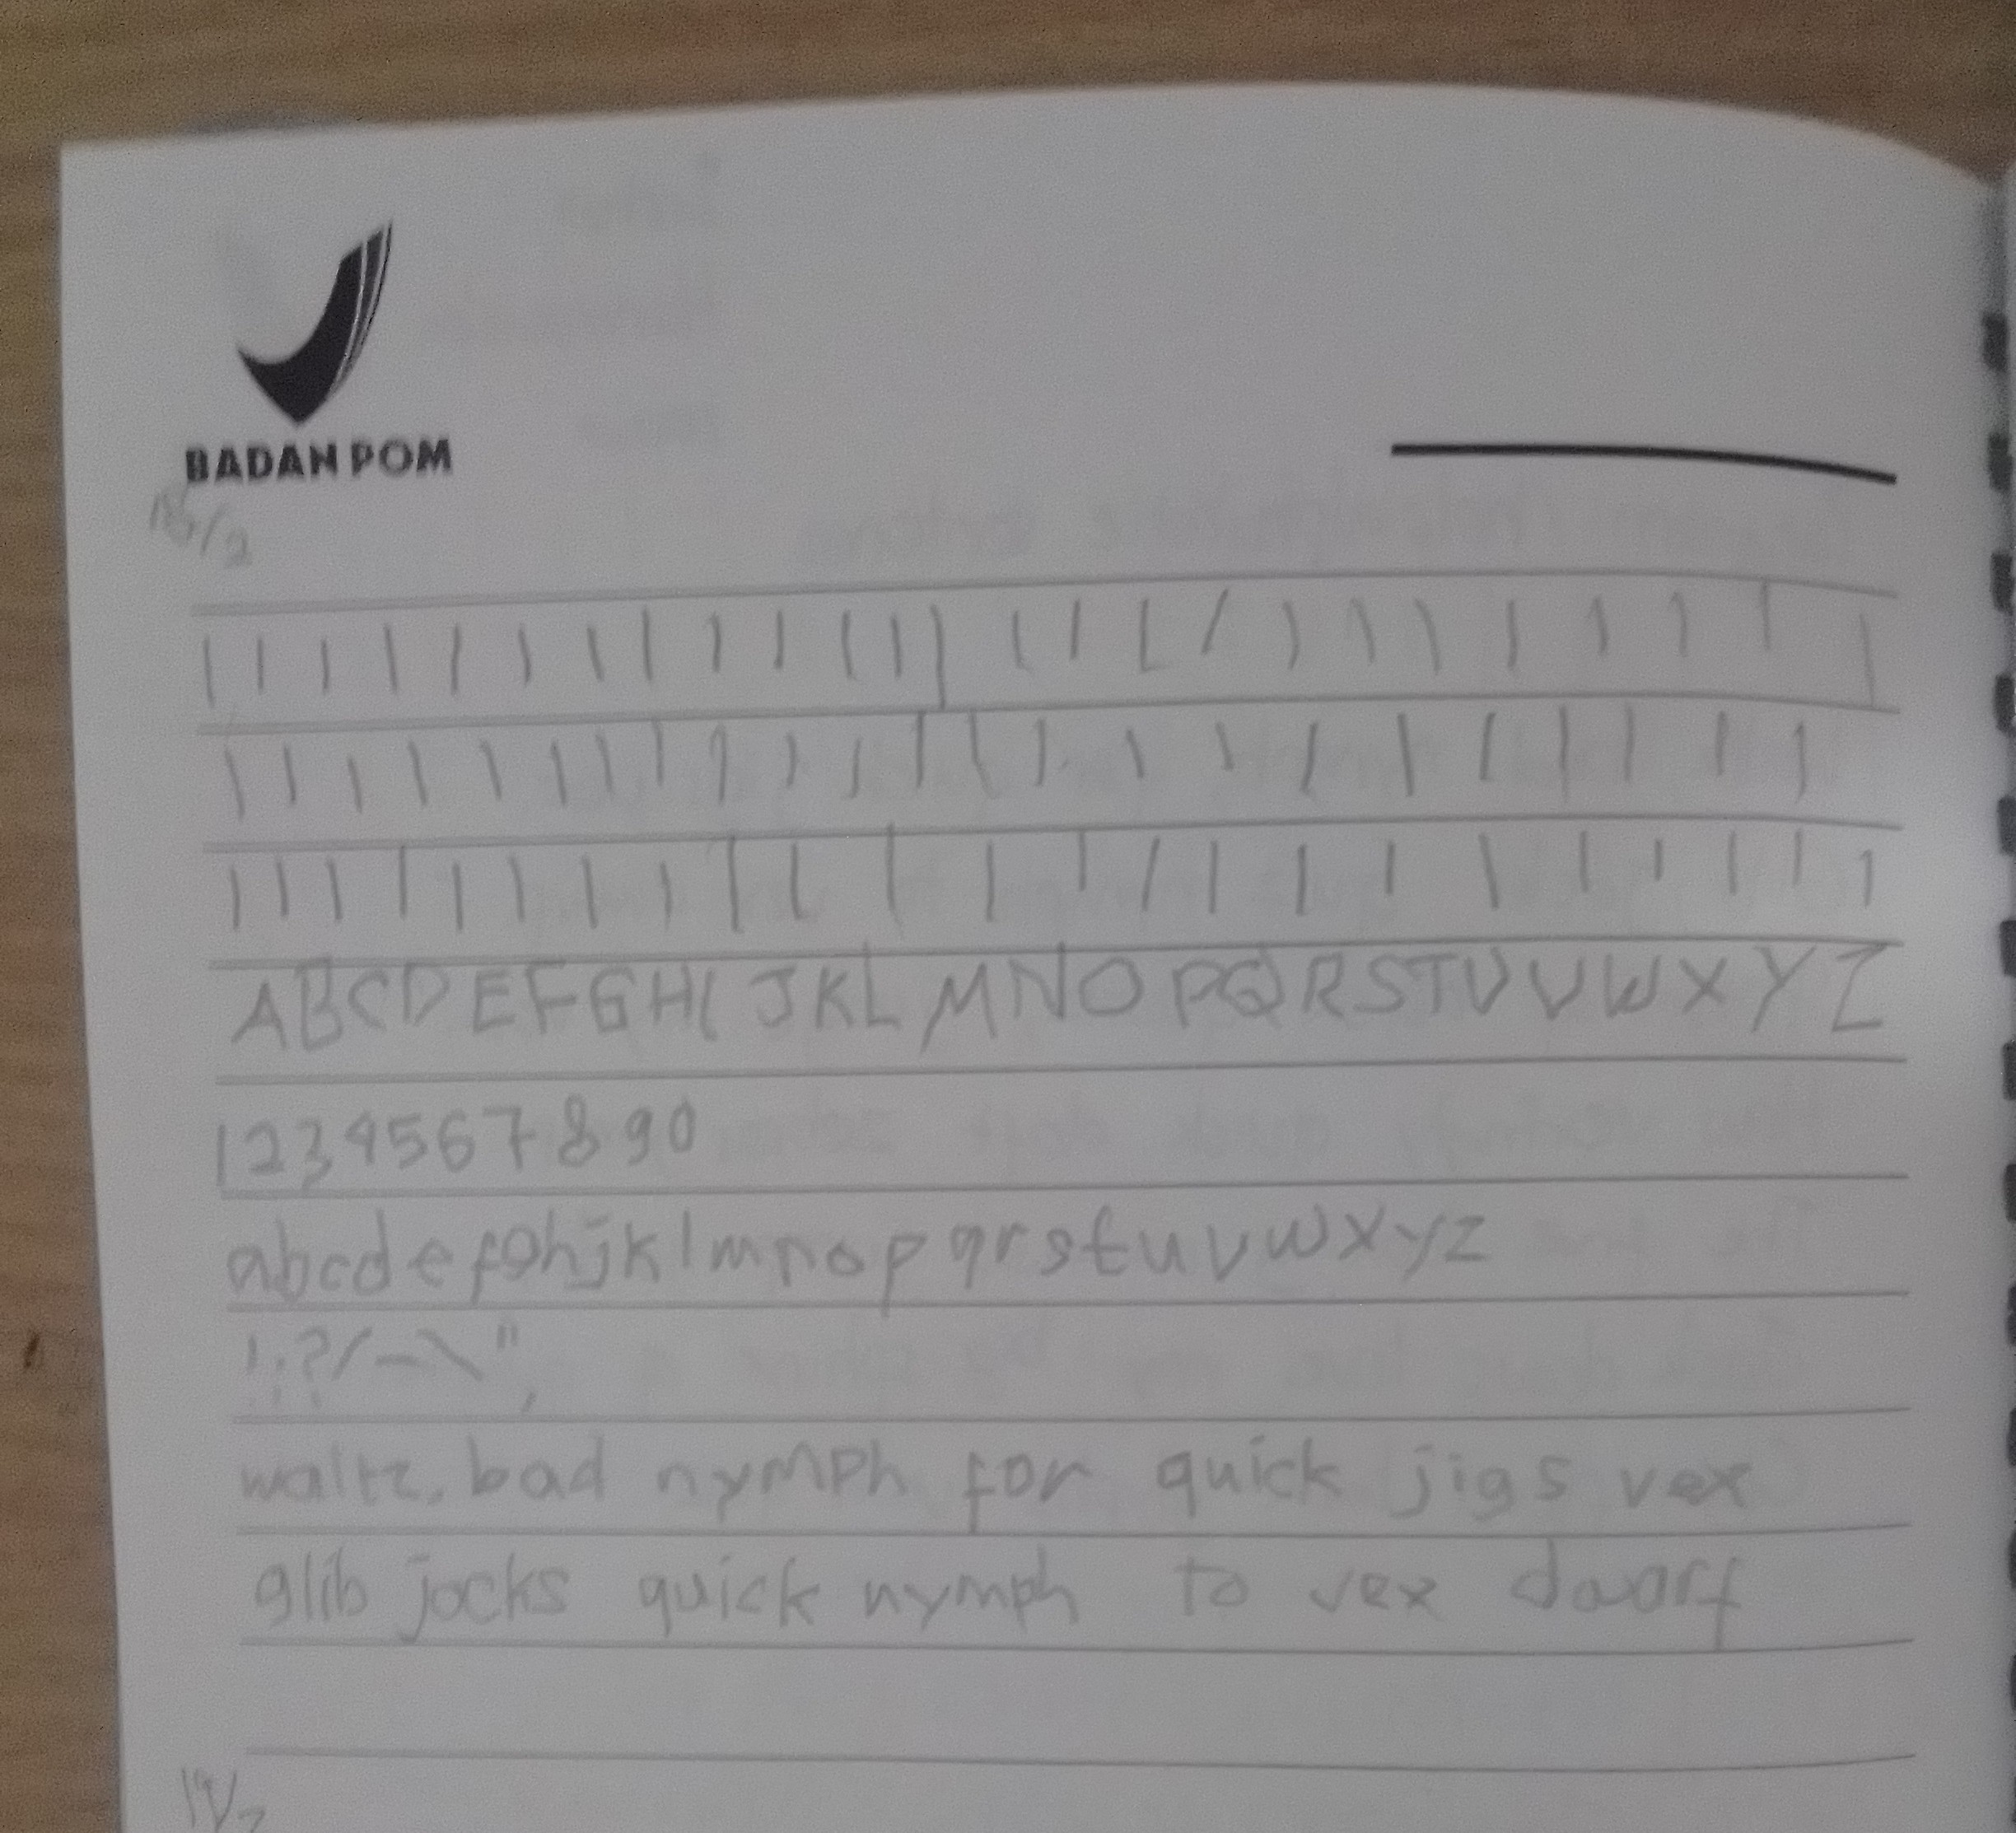 BADAN POM
| | | | | | | | | | | | | | | | | | | | | | | | |
| | | | | | | | | | | | | | | | | | | | | | |
| | | | | | | | | | | | | | | | | | | | | | |
ABCDEFGHIJKLMNOPQRSTUVVWXYZ
1234567890
abcdefghijklmnopqrstuvwxyz
!;?/-\",
waltz, bad nymph for quick jigs vex
glib jocks quick nymph to vex dwarf